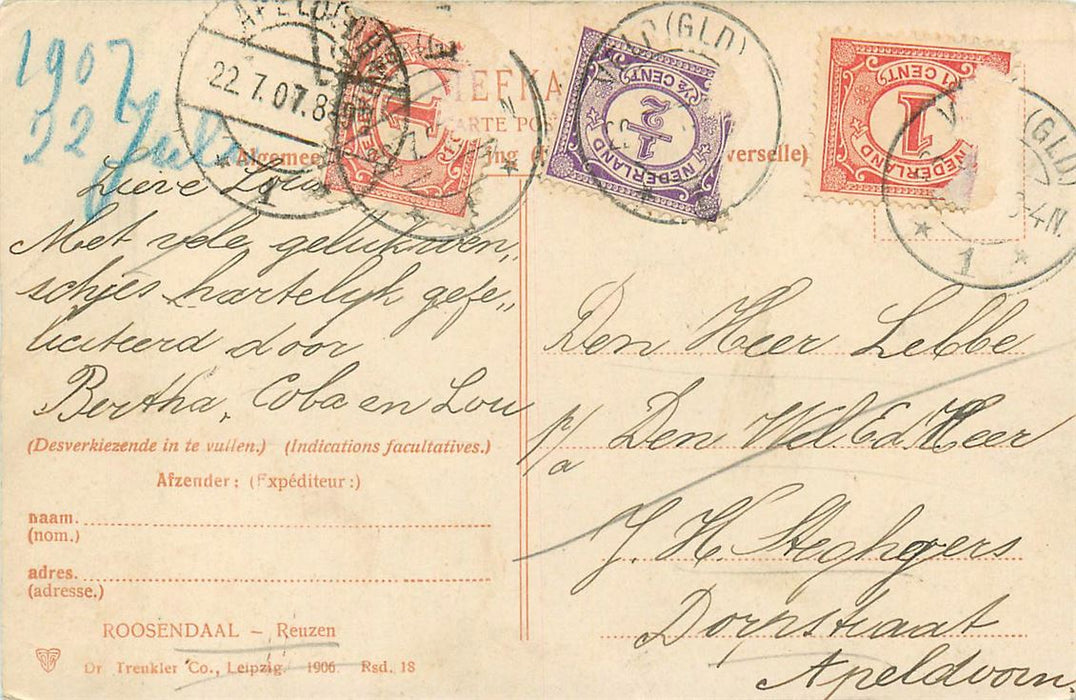 1907
22 Juli
APELDOORN
22.7.07.8
1
NEDERLAND
1 CENT
NEDERLAND
½ CENT
NEDERLAND
1 CENT
(GLD)
1
(GLD)
4N.
1
Algemeene
verselle)
Lieve Lou
Met vele gelukwen„
schjes hartelijk gefe„
liciteerd door
Bertha, Coba en Lou
(Desverkiezende in te vullen.) (Indications facultatives.)
Afzender: (Expéditeur:)
naam.
(nom.)
adres.
(adresse.)
ROOSENDAAL – Reuzen
Dr Trenkler Co., Leipzig. 1906. Rsd. 18
Den Heer Lebbe
p/a Den Wel.Ed. Heer
J. H. Steghgers
Dorpstraat
Apeldoorn